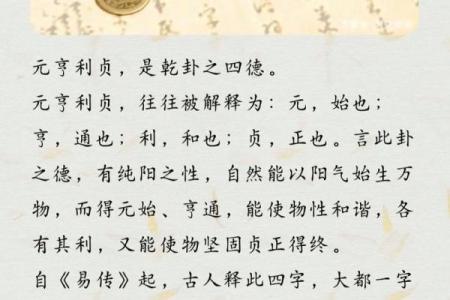 元亨利贞，是乾卦之四德。
元亨利贞，往往被解释为：元，始也；
亨，通也；利，和也；贞，正也。言此卦
之德，有纯阳之性，自然能以阳气始生万
物，而得元始、亨通，能使物性和谐，各
有其利，又能使物坚固贞正得终。
自《易传》起，古人释此四字，大都一字